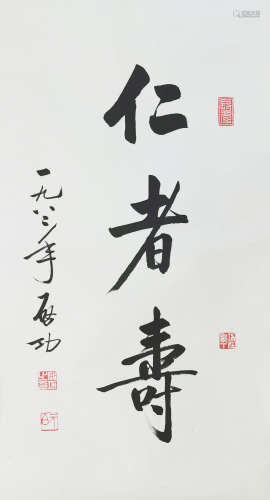 仁者壽
一九八三年 啟功